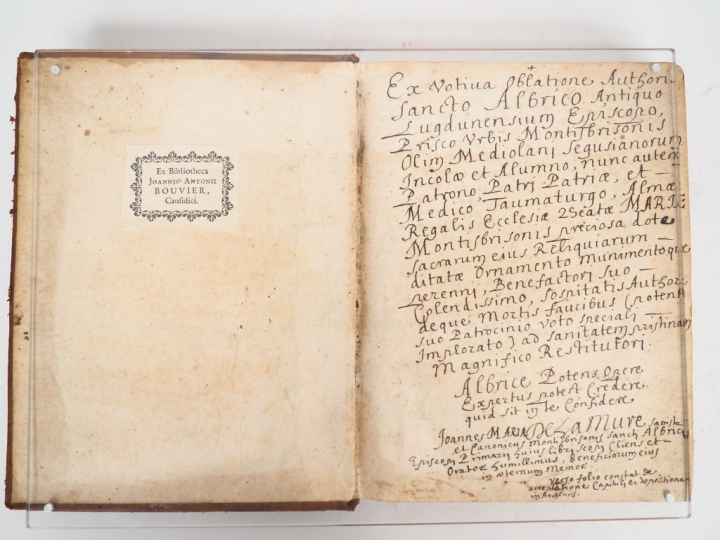 Ex Bibliotheca
JOANNIS-ANTONII
BOUVIER,
Causidici.
Ex Votiva Oblatione Authoris
Sancto Albrico Antiquo
Lugdunensium Episcopo,
Prisco Urbis Montisbrisonis
Olim Mediolani Segusianorum
Incolæ et Alumno, nunc autem
Patrono, Patri Patriæ, et —
Medico Taumaturgo, Almæ
Regalis Ecclesiæ Beatæ MARIÆ
Montisbrisonis preciosa dote
sacrarum eius Reliquiarum —
ditatæ Ornamento munimentoque
perenni, Benefactori suo —
Colendissimo, Sospitatis Authori
deque Mortis faucibus (potenti
suo Patrocinio voto speciali —
Implorato) ad sanitatem pristinam
Magnifico Restitutori.
Albrice Potens Opere
Expertus potest Credere
quid sit in te Confidere
Joannes MARIA DE LA MURE, sacrista
et Canonicus Montisbrisonis Sancti Albrici
Episcopi Primarij huius libri scopi Cliens et
Orator humillimus, Beneficiorum eius
in æternum Memor.
verso folio constat de
acceptatione Capituli et depositione
in Archivis.